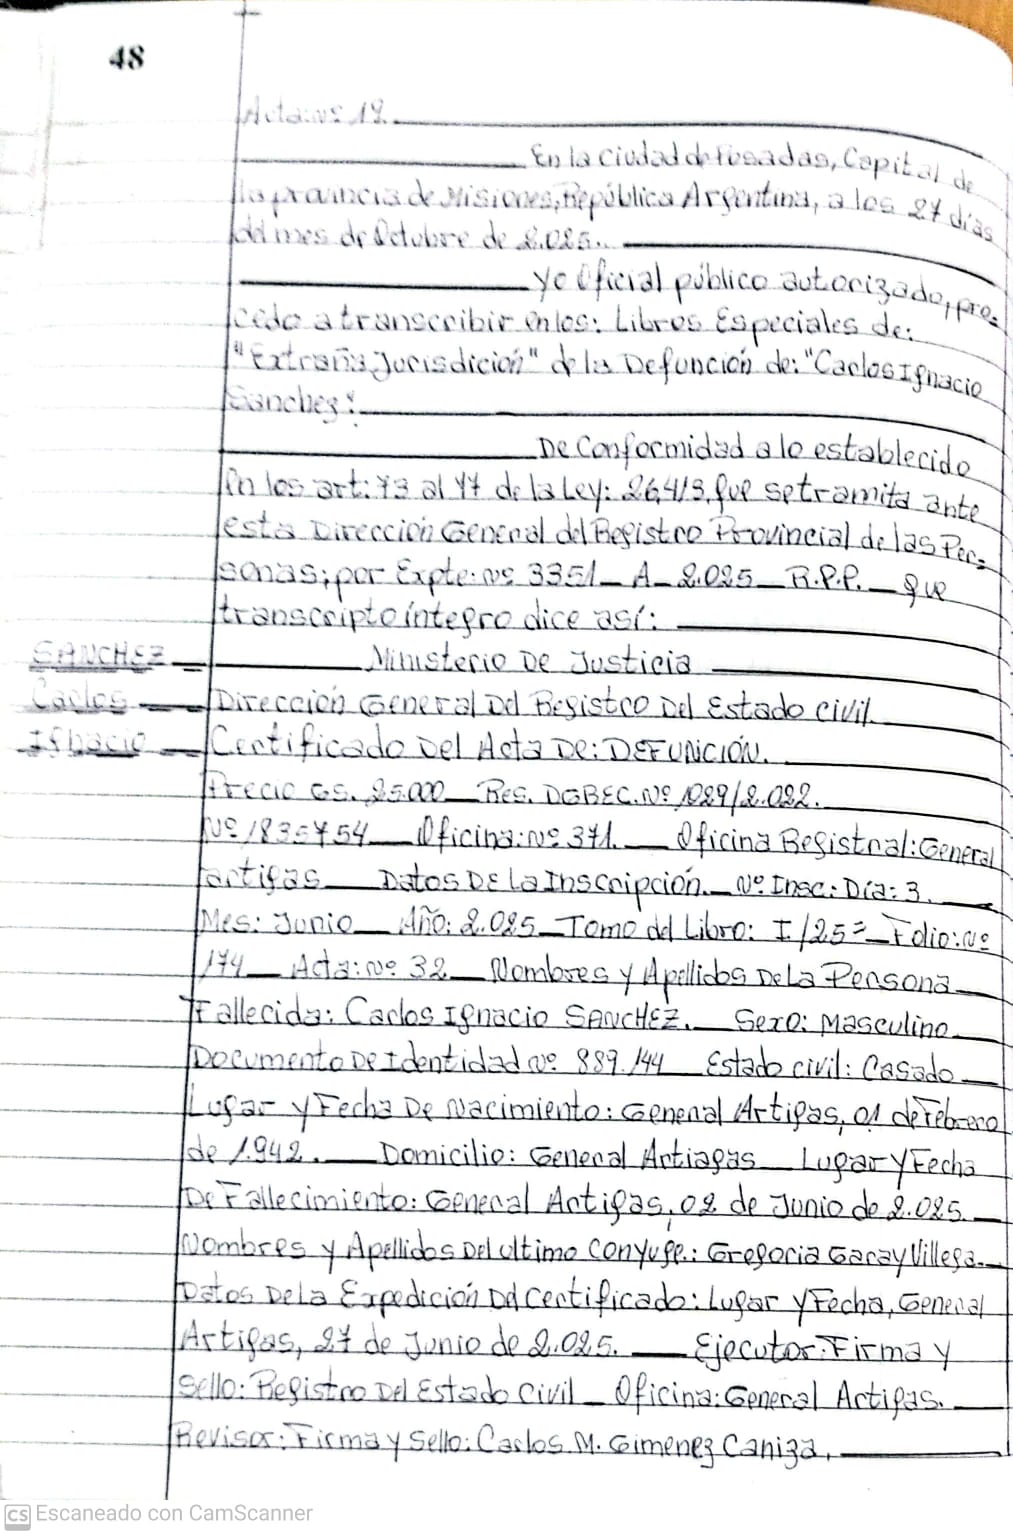 48
Acta: Nº 19.
En la Ciudad de Posadas, Capital de
la provincia de Misiones, República Argentina, a los 27 días
del mes de Octubre de 2.025..
Yo Oficial público autorizado, pro-
cedo a transcribir en los: Libros Especiales de:
"Extraña Jurisdición" de la Defunción de: "Carlos Ignacio
Sanchez".
De Conformidad a lo establecido
en los art: 73 al 77 de la Ley: 26,413, que se tramita ante
esta Dirección General del Registro Provincial de las Per-
sonas; por Expte: Nº 3351 - A - 2.025 - R.P.P. - que
transcripto íntegro dice así:
SANCHEZ Ministerio De Justicia
Carlos Dirección General Del Registro Del Estado Civil.
Ignacio Certificado Del Acta De: DEFUNCIÓN.
Precio GS. 25.000 Res. DGREC. Nº 1029/2.022.
Nº 1835754 Oficina: Nº 371. Oficina Registral: General
artigas Datos De La Inscripción. Nº Insc: Día: 3.
Mes: Junio Año: 2.025 Tomo del Libro: I/25= Folio: Nº
174 Acta: Nº 32 Nombres y Apellidos De La Persona
Fallecida: Carlos Ignacio SANCHEZ. Sexo: Masculino
Documento De Identidad Nº 889.144 Estado civil: Casado
Lugar y Fecha De Nacimiento: General Artigas, 01 de Febrero
de 1.942. Domicilio: General Artiagas Lugar y Fecha
De Fallecimiento: General Artigas, 02 de Junio de 2.025.
Nombres y Apellidos Del ultimo Conyuge.: Gregoria Garay Villega.
Datos De la Expedición Del Certificado: Lugar y Fecha, General
Artigas, 27 de Junio de 2.025. Ejecutor: Firma y
Sello: Registro Del Estado Civil Oficina: General Artigas.
Revisor: Firma y Sello: Carlos M. Gimenez Caniza,
CS Escaneado con CamScanner